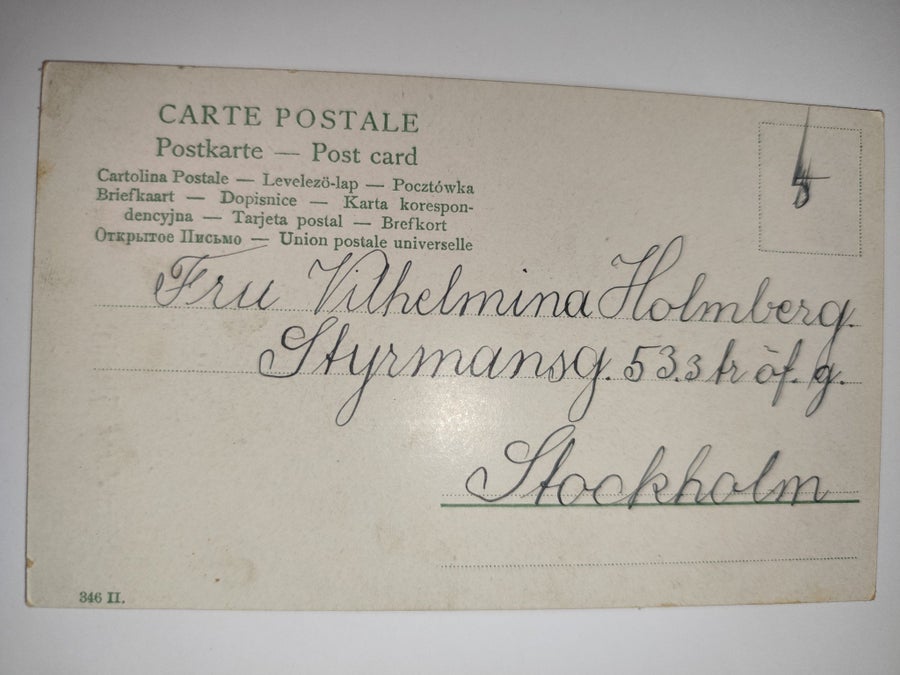 CARTE POSTALE
Postkarte — Post card
Cartolina Postale — Levelező-lap — Pocztówka
Briefkaart — Dopisnice — Karta korespon-
dencyjna — Tarjeta postal — Brefkort
Открытое Письмо — Union postale universelle
Fru Vilhelmina Holmberg.
Styrmansg. 53. 3 tr öf. g.
Stockholm
346 II.